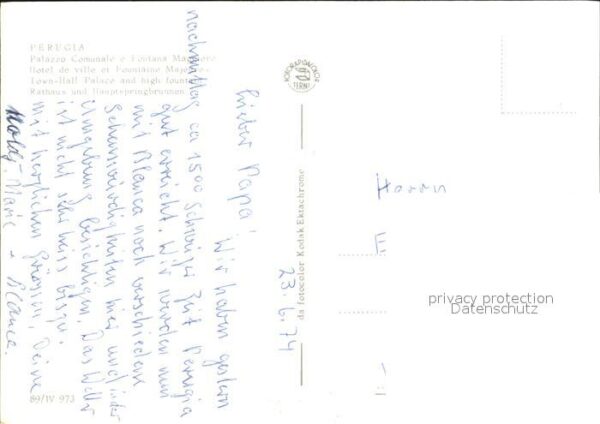 PERUGIA
Palazzo Comunale e Fontana Maggiore
Hotel de ville et Fountaine Majeure
Town-Hall Palace and high fountain
Rathaus und Hauptspringbrunnen
23.6.74
Lieber Papa!
Wir haben gestern
nachmittag ca 1500 Schweizer Zeit Perugia
gut erreicht. Wir werden nun
mit Blanca noch verschiedene
Sehenswürdigkeiten hier und in der
Umgebung besichtigen. Das Wetter
ist nicht sehr heiss bisher.
Mit herzlichen Grüssen, Deine
Marie + Blanca.
da fotocolor Kodak Ektachrome
TERNI
Herrn
E
privacy protection
Datenschutz
89/IV 973